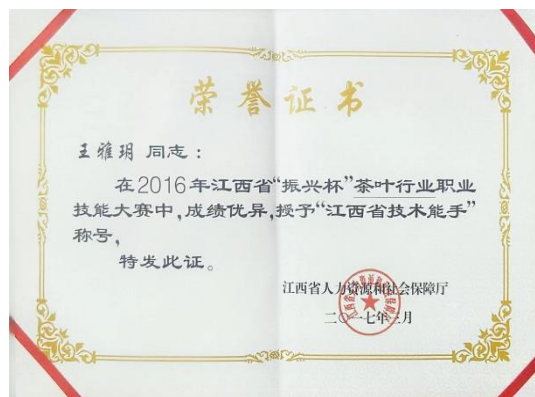 荣誉证书
王雅玥 同志：
在2016年江西省“振兴杯”茶叶行业职业
技能大赛中，成绩优异，授予“江西省技术能手”
称号，
特发此证。
江西省人力资源和社会保障厅
二〇一七年三月